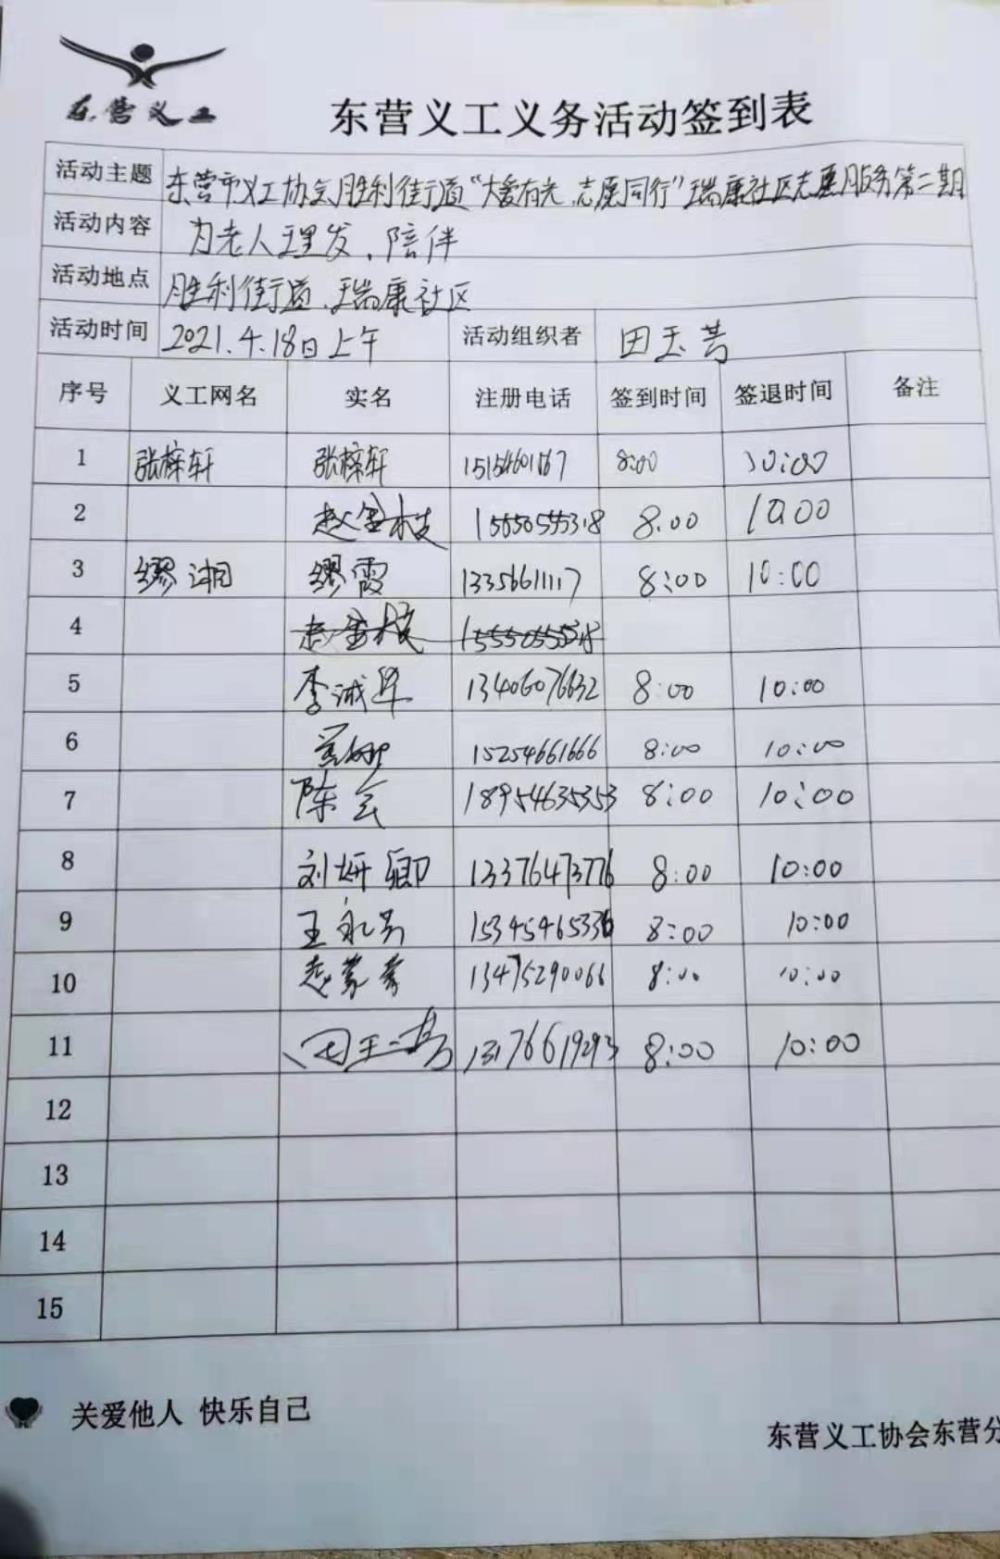 东营义工
东营义工义务活动签到表
活动主题 东营市义工协会胜利街道“大爱有光.志愿同行”瑞康社区志愿服务第二期
活动内容 为老人理发.陪伴
活动地点 胜利街道.瑞康社区
活动时间 2021.4.18日上午 活动组织者 田玉芳
序号 义工网名 实名 注册电话 签到时间 签退时间 备注
1 张梓轩 张梓轩 8:00 10:00
2 赵金枝 8.00 10.00
3 缪湘 缪霞 13356611117 8:00 10:00
4
5 李诚军 13406076632 8:00 10:00
6 15254661666 8:00 10:00
7 陈会 18954635353 8:00 10:00
8 刘妍卿 13376473776 8:00 10:00
9 王永芳 15345465336 8:00 10:00
10 赵蒙蒙 13475290066 8:00 10:00
11 田玉芳 13176619293 8:00 10:00
12
13
14
15
关爱他人 快乐自己
东营义工协会东营分